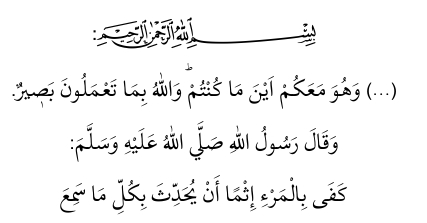 بِسْمِ اللهِ الرَّحْمٰنِ الرَّحِيْمِ:
(...) وَهُوَ مَعَكُمْ اَيْنَ مَا كُنْتُمْۜ وَاللهُ بِمَا تَعْمَلُونَ بَصٖيرٌ.
وَقَالَ رَسُولُ اللهِ صَلَّي اللهُ عَلَيْهِ وَسَلَّمَ:
كَفَى بِالْمَرْءِ إِثْمًا أَنْ يُحَدِّثَ بِكُلِّ مَا سَمِعَ